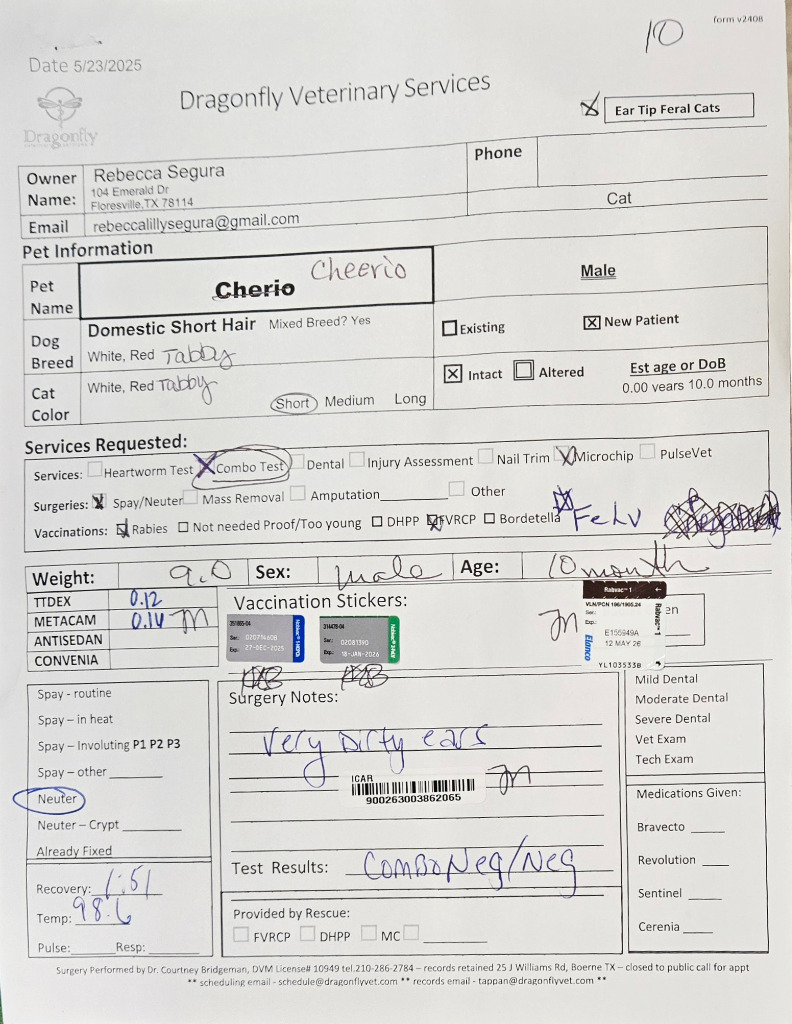 form v2408
10
Date 5/23/2025
Dragonfly Veterinary Services
Dragonfly
Ear Tip Feral Cats
Owner Name: Rebecca Segura
104 Emerald Dr
Floresville,TX 78114
Phone
Cat
Email rebeccalillysegura@gmail.com
Pet Information
Pet Name Cherio Cheerio
Male
Dog Breed Domestic Short Hair Mixed Breed? Yes
White, Red Tabby
Existing New Patient
Cat Color White, Red Tabby
Short Medium Long
Intact Altered
Est age or DoB
0.00 years 10.0 months
Services Requested:
Services: Heartworm Test Combo Test Dental Injury Assessment Nail Trim Microchip PulseVet
Surgeries: Spay/Neuter Mass Removal Amputation Other
Vaccinations: Rabies Not needed Proof/Too young DHPP FVRCP Bordetella FeLV
Weight: 9.0 Sex: male Age: 10 month
TTDEX 0.12
METACAM 0.14
ANTISEDAN
CONVENIA
Vaccination Stickers:
351885-04
Ser: 02071460B
Exp: 27-DEC-2025
Nobivac
314478-04
Ser: 02081390
Exp: 18-JAN-2026
Nobivac
Rabvac™ 1
VLN/PCN 196/1905.24
Ser:
Exp:
E155949A
12 MAY 26
Elanco
Rabvac™ 1
YL103533B
en
Spay - routine
Spay – in heat
Spay – Involuting P1 P2 P3
Spay – other
Neuter
Neuter – Crypt
Already Fixed
Recovery: 1:51
Temp: 98.6
Pulse: Resp:
Surgery Notes:
Very Dirty ears
ICAR
900263003862065
Test Results: Combo Neg/Neg
Provided by Rescue:
FVRCP DHPP MC
Mild Dental
Moderate Dental
Severe Dental
Vet Exam
Tech Exam
Medications Given:
Bravecto
Revolution
Sentinel
Cerenia
Surgery Performed by Dr. Courtney Bridgeman, DVM License# 10949 tel.210-286-2784 – records retained 25 J Williams Rd, Boerne TX – closed to public call for appt
** scheduling email - schedule@dragonflyvet.com ** records email - tappan@dragonflyvet.com **